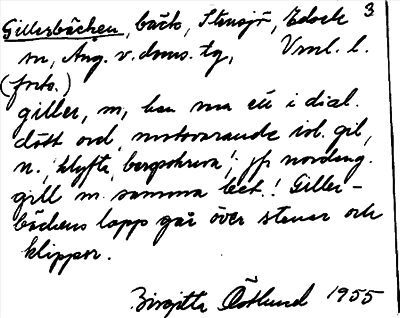 Gillersbäcken, bäck, Stensjö, Edock 3
sn, Ång. v. doms. tg, Vml. l.
(forts.)
giller, m, kan ha ett i dial.
dött ord, motsvarande isl. gil,
n., 'klyfta, bergskreva'; jfr nordeng.
gill m samma bet.! Giller-
bäckens lopp går över stenar och
klippor.
Birgitta Östlund 1955